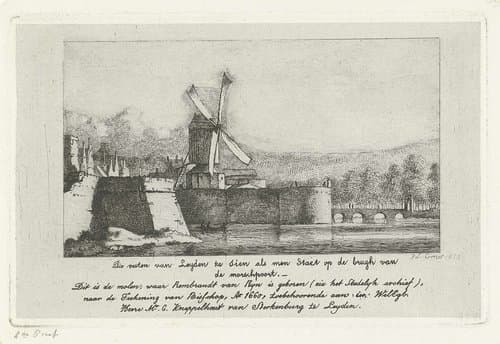 Dus buiten van Leyden te Sien als men Staat op de brugh van
de morschpoort. —
Dit is de molen, waar Rembrandt van Ryn is geboren (zie het Stedelyk archief),
naar de Teekening van Bisschop, Ao 1660, toebehoorende aan den Wellgb.
Heere Mr. C. Kneppelhout van Sterkenburg te Leyden.